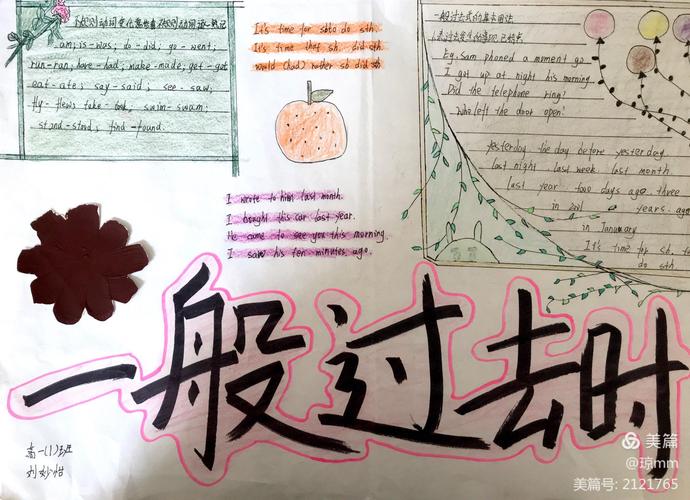 动词变化熟记
am;is-was; do-did; go-went;
run-ran; have-had; make-made; get-got
eat-ate; say-said; see-saw;
fly-flew; take-took; swim-swam;
stand-stood; find-found.
It's time for sb to do sth.
It's time that sb. did sth
would (had) rather sb did sb
一般过去式的基本用法
Eg. Sam phoned a moment go
I got up at night his morning.
Did the telephone ring?
Who left the door open?
yesterday the day before yesterday
last night last week last month
last year two days ago three
in 2001 years ago
in January
It's time for sb. to
do sth.
I wrote to him last month.
I bought this car last year.
He came to see you this morning.
I saw his ten minutes ago.
一般过去时
高一(1)班
刘妙怡
美篇
@琼mm
美篇号: 2121765